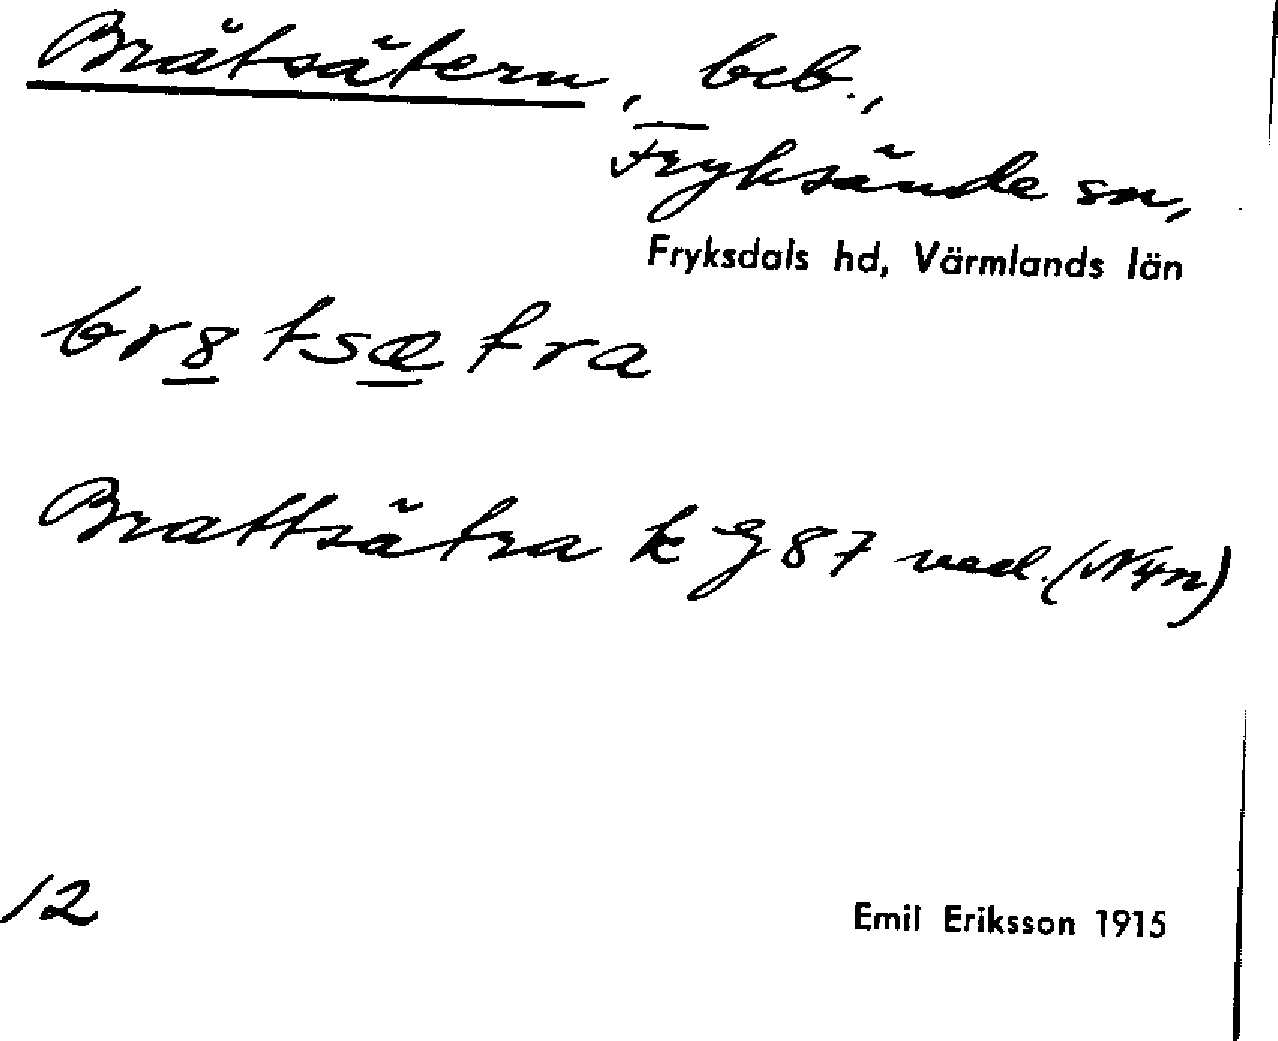 Bråtsätern, beb.,
Fryksände sn,
Fryksdals hd, Värmlands län
br8tsætra
Brattsätra k G 87 ved. (Nyn)
12
Emil Eriksson 1915